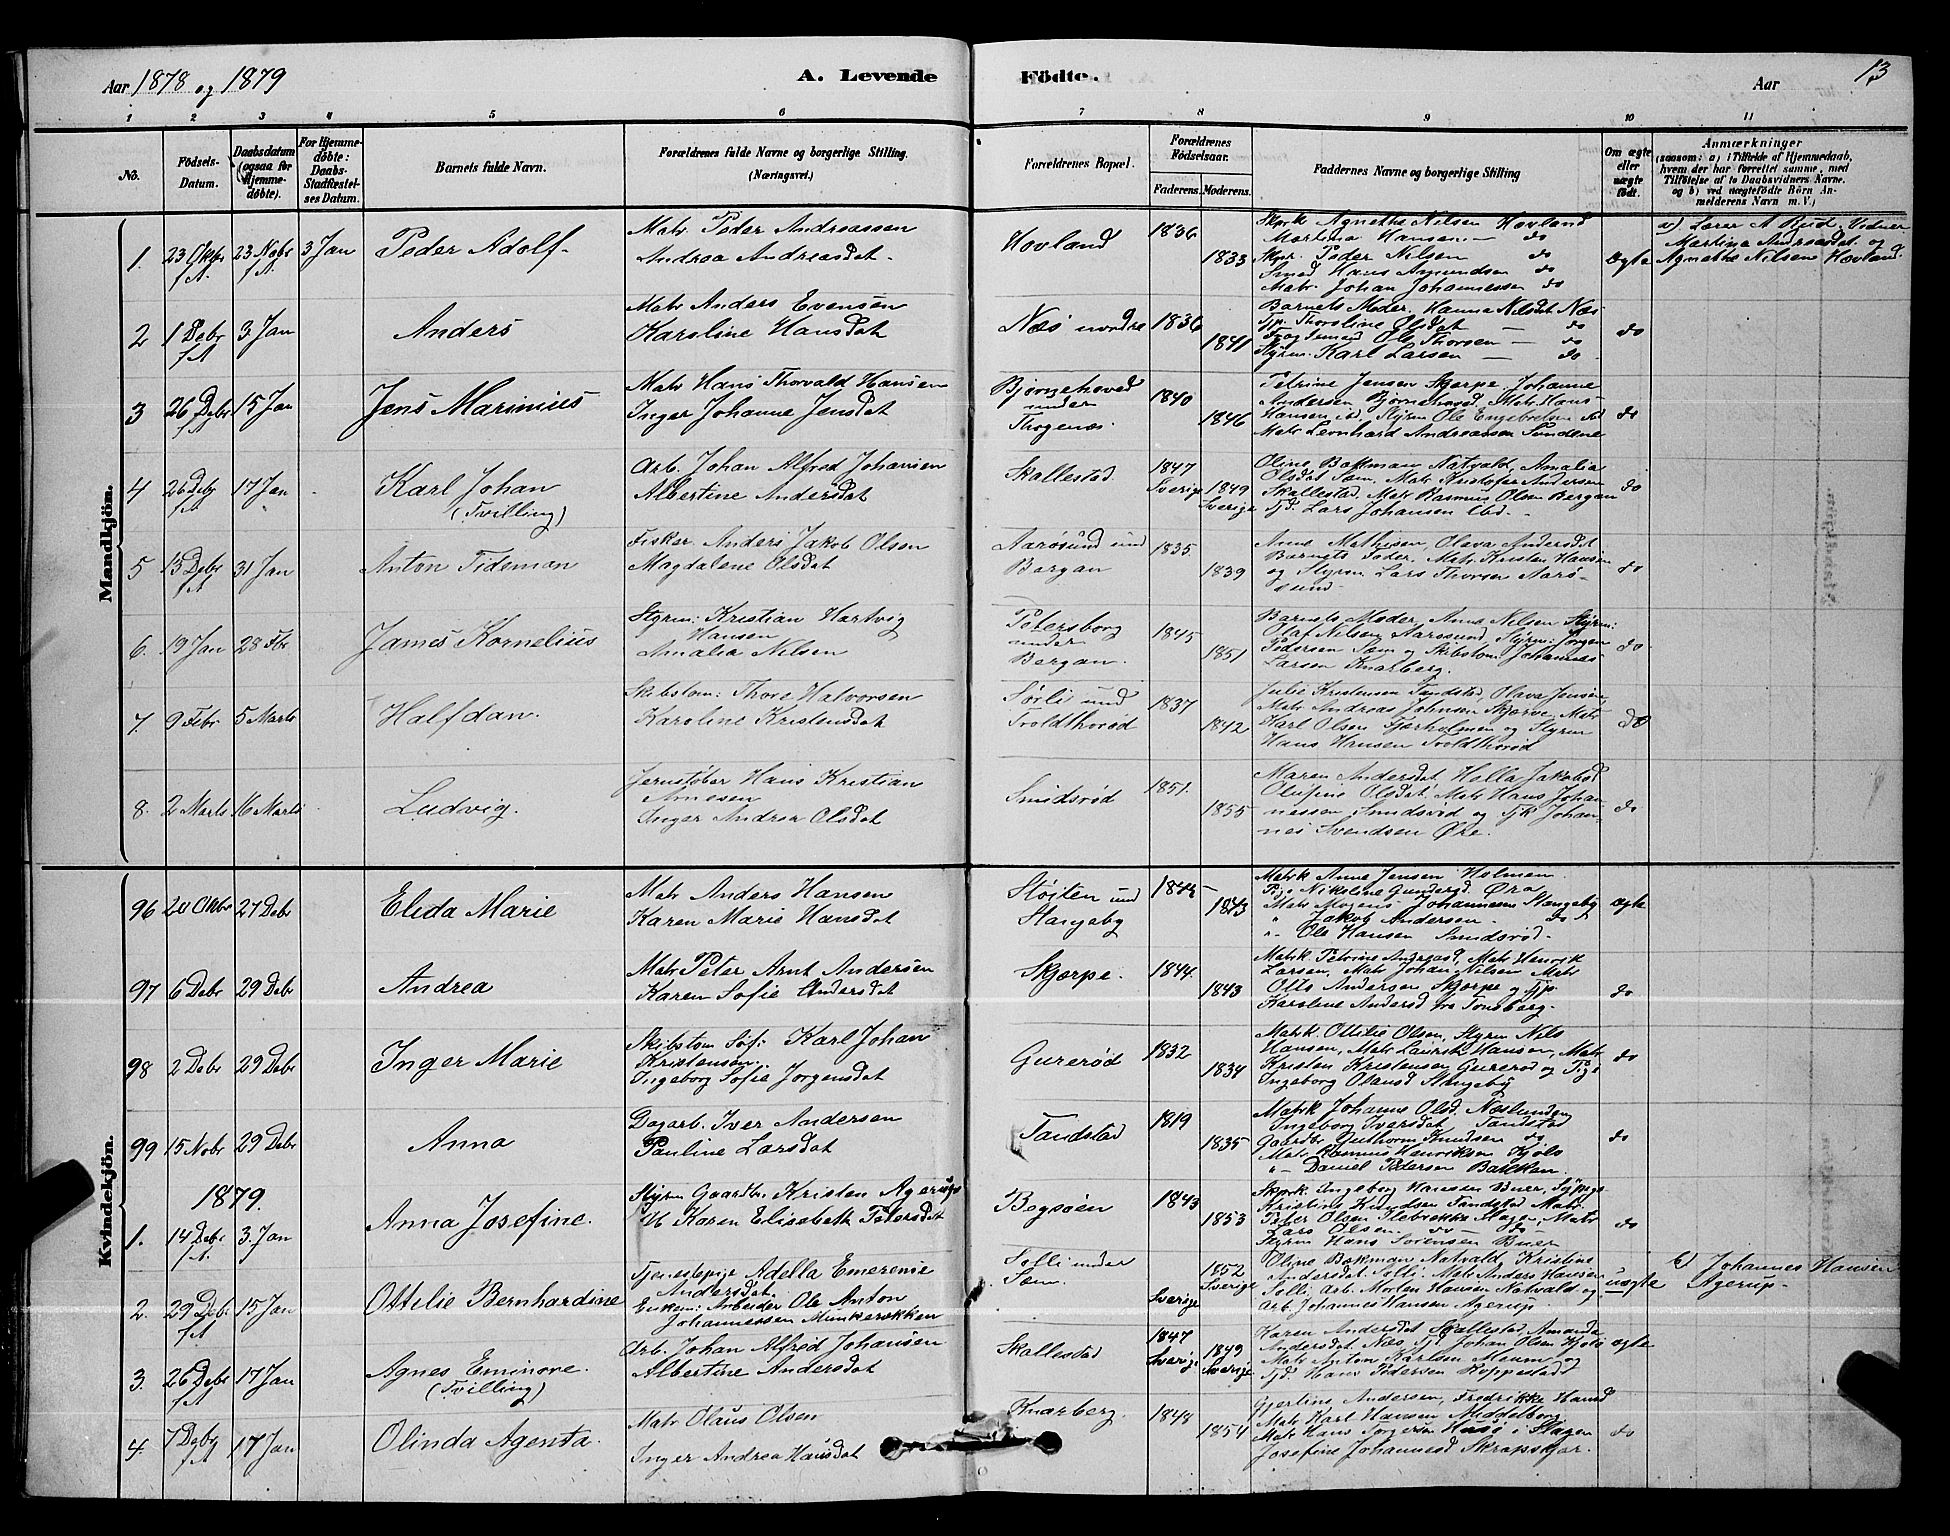 Aar 1878 og 1879
A. Levende Födte.
Aar 13
1 2 3 4 5 6 7 8 9 10 11
No.
Födsels-Datum.
Daabsdatum (ogsaa for Hjemmedøbte).
For Hjemmedøbte: Daabs-Stadfæstelses Datum.
Barnets fulde Navn.
Forældrenes fulde Navne og borgerlige Stilling. (Næringsvei.)
Forældrenes Bopæl.
Forældrenes Födselsaar.
Faderens. Moderens.
Faddernes Navne og borgerlige Stilling
Om ægte eller uægte født.
Anmærkninger
(saasom: a) i Tilfælde af Hjemmedaab, hvem der har forrettet samme, med Tilföielse af to Daabsvidners Navne, og b) ved uægtefödte Börn Anmelderens Navn m. V.)
Mandkjön.
1. 23 Oktbr f.A. 23 Nobr f.A. 3 Jan Peder Adolf
Matr. Peder Andreassen
Andrea Andreasdat.
Hovland 1836 1833
Skprk Agnethe Nilsen Hovland
Martina Hansen — do
Skpr. Peder Nilsen do
Smed Hans Amundsen do
Matr. Johan Johannessen do
Ægte
a) Lærer A Reid. Vidner
Martina Andreasdat og
Agnethe Nilsen Hovland.
2 1 Debr f.A. 3 Jan Anders
Matr Anders Evensen
Karoline Hansdat
Næs nordre 1836 1841
Barnets Moder, Hanna Nilsdat Næs
Tjp. Thorline Olsdat — do
Ole Thorsen — do
Styrm. Karl Larsen — do
do
3 26 Debr f.A. 15 Jan Jens Marinius
Matr Hans Thorvald Hansen
Inger Johanne Jensdat
Bjørnehoved under
1840 1846
Petrine Jensen Skjerpe, Johanne
Andersen Bjørnehoved, Matr Hans
Hansen ibd, Styrm Ole Engebretsen ibd
Matr Leonhard Andreassen Sundene
do
4 26 Debr f.A. 17 Jan Karl Johan
(Tvilling)
Arb. Johan Alfred Johansen
Albertine Andersdat
Skallestad 1847 Sverige 1849 Sverige
Oline Bakman Natvald, Amalia
Olsdat Sem, Matr Kristofer Andersen
Skallestad, Matr Rasmus Olsen Bergan
Tjd. Lars Johansen ibd.
do
5 13 Debr f.A. 31 Jan Anton Tideman
Fisker Anders Jakob Olsen
Magdalene Olsdat
Aarøsund und
Bergan
1835. 1839
Anne Mathisen, Olava Andersdat
Barnets Fader, Matr Kristen Hansen
og Styrm Lars Thorsen Aarø-
sund
do
6. 19 Jan 28 Fbr James Kornelius
Styrm: Kristian Hartvig
Hansen
Amalia Nilsen
Petersborg
under
Bergan.
1845 1851
Barnets Moder, Anna Nilsen Styrm:
Olaf Nilsen Aarøsund, Styrm: Jørgen
Pedersen Sem og Skibstom: Johannes
Larsen Knarberg.
do
7. 9 Febr 5 Marts Halfdan.
Skibstom: Thore Halvorsen
Karoline Kristensdat
Sørli und
Troldthorød
1837 1842
Julie Kristensen Tandstad, Olava Jensen,
Matr Andreas Johnsen Skjerve, Matr
Karl Olsen Fjærholmen og Styrm
Hans Hansen Troldthorød
do
8. 2 Marts 16 Marts Ludvig.
Jernstøber Hans Kristian
Arnesen
Inger Andrea Olsdat
Smidsrød 1851. 1855
Maren Andersdat Holla Jakobsd
Olufine Olsdat, Matr Hans Johan-
nessen Smidsrød og Tjk Johan-
nes Svendsen Øre.
do
Kvindekjön.
96 20 Oktbr 27 Debr Elida Marie
Matr Anders Hansen
Karen Marie Hansdat
Støiten und
Stangeby
1843
Matrk Anne Jensen Holmen
Pige Nikoline Gundersd Øra
Matr Mogens Johannesen Stangeby
„ Jakob Andersen. do
„ Ole Hansen Smidsrød.
ægte
97 6 Debr 29 Debr Andrea
Matr Peter Arnt Andersen
Karen Sofie Andersdat
Skjerpe. 1844. 1843
Matrk. Petrine Andreasd, Matr Henrik
Larsen, Matr Johan Nilsen Matr
Otto Andersen Skjerpe og Tjp.
Karoline Andersd fra Tønsberg.
do
98 2 Debr 29 Debr Inger Marie
Skibstom Søf: Karl Johan
Kristensen.
Ingeborg Sofie Jørgensdat
Gurerød 1832 1834
Matrk. Ottilie Olsen, Styrm Nils
Hansen, Matr Laurits Hansen, Matr
Kristen Kristensen Gurerød og Pige
Ingeborg Olausd Stangeby
do
99 15 Nobr 29 Debr Anna
Dagarb. Iver Andersen
Pauline Larsdat
Tandstad 1819 1835
Matrk Johanne Olsd. Næslunden
Ingeborg Iversdat Tandstad
Gaardbr Guthorm Knudsen do
Matr Rasmus Henriksen Kjøle
„ — Daniel Pedersen Bakken.
do
1879.
1. 14 Debr f.A. 3. Jan Anna Josefine.
Styrm Gaardbr. Kristen Agerup
Karen Elisabeth Petersdat
Bogsøen 1843 1853
Skprk. Ingeborg Hansen Buer,
Kristine Knudsen Tandstad Matr
Peter Olsen Plebrekke Slagen, Matr
Lars Olsen do do
Styrm Hans Sørensen Buer
do
2. 29 Debr f.A. 15 Jan Ottilie Bernhardine
Tjenestepige Adella Emerense
Andersdat.
Enkem: Arbeider Ole Anton
Johannessen Munkerekken
Solli under
Sem.
Sverige 1852 Sverige
Oline Bakman Natvald, Kristine
Andersdat Solli, Matr Anders Hansen
Solli, Arb. Morten Hansen Natvald og
Arb. Johannes Hansen Agerup.
uægte
b) Johannes Hansen
Agerup
3. 26 Debr f.A. 17 Jan Agnes Eminore.
(Tvilling)
Arb. Johan Alfred Johansen
Albertine Andersdat
Skallestad 1847 Sverige 1849 Sverige
Karen Andersdat Skallestad, Amanda
Andersdat Næs, Tjd. Johan Olsen Kjøle
Matr Anton Karlsen Meum og
Tjd. Hans Pedersen Koppestad
ægte
4. 7 Debr f.A. 17 Jan Olinda Agenta.
Matr Olaus Olsen
Inger Andrea Hansdat
Knarberg. 1848 1854
Gjertine Andersen, Fredrikke Hansd
Matr Karl Hansen Middelborg
Matr Hans Jørgensen Husø i Slagen
Josefine Johannesd Skrapskjær.
do